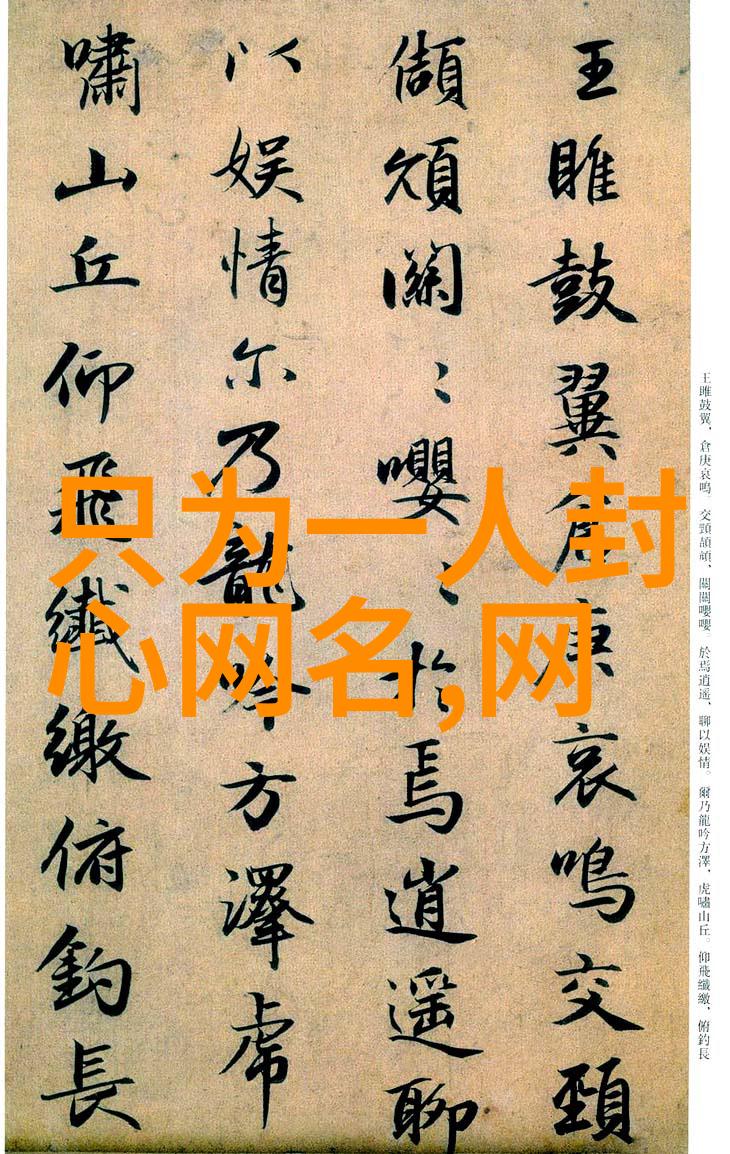 王雎鼓翼倉庚哀鳴交頸
頡頏關〻嚶〻於焉逍遥聊
以娱情尔乃龍吟方澤虎
嘯山丘仰飛纖繳俯釣長
王雎鼓翼,倉庚哀鳴。交頸頡頏,關關嚶嚶。於焉逍遥,聊以娱情。爾乃龍吟方澤,虎嘯山丘。仰飛纖繳,俯釣長
只为一人封
心网名,网